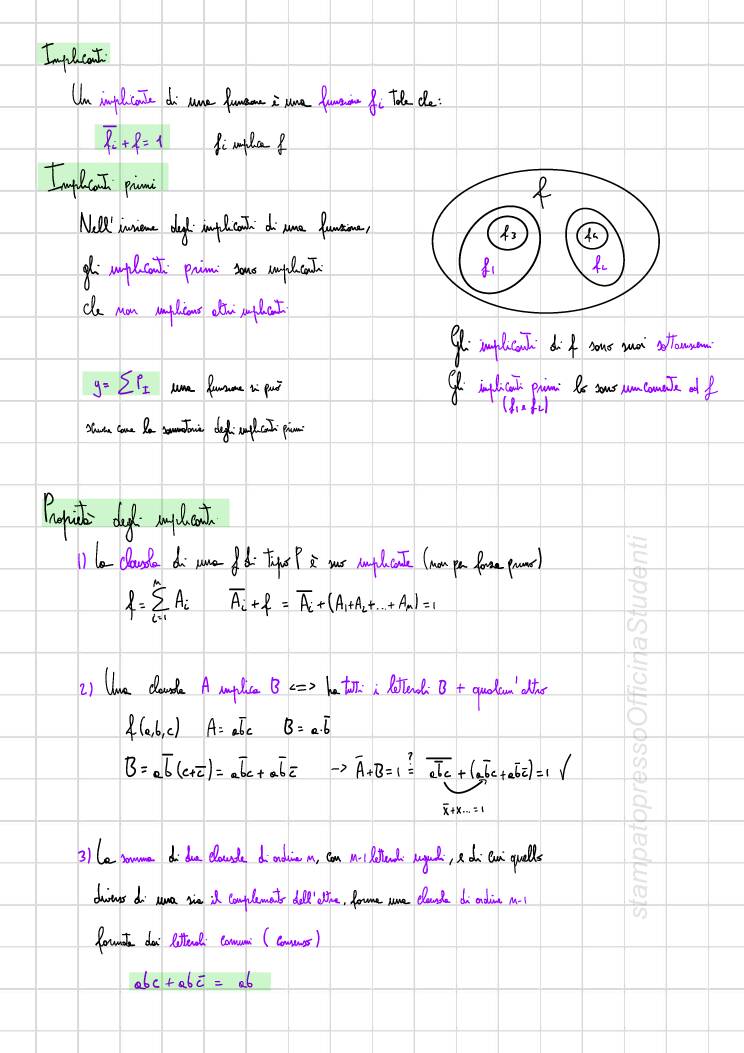 Implicanti
Un implicante di una funzione è una funzione fi tale che:
f̅i + f = 1 fi implica f
Implicanti primi
Nell'insieme degli implicanti di una funzione,
gli implicanti primi sono implicanti
che non implicano altri implicanti
f
f3
f1
f4
f2
Gli implicanti di f sono suoi sottoinsiemi
Gli implicanti primi lo sono unicamente ad f
(f1 e f2)
y = ∑ PI una funzione si può
scrivere come la sommatoria degli implicanti primi
Propietà degli implicanti
1) La clausola di una f di tipo P è suo implicante (non per forza primo)
f = ∑ i=1 n Ai A̅i + f = A̅i + (A1+A2+...+An) = 1
2) Una clausola A implica B <=> ha tutti i letterali B + qualcun'altro
f(a,b,c) A = ab̅c B = a·b̅
B = ab̅(c+c̅) = ab̅c + ab̅c̅ -> A̅+B=1 ?= \overline{ab̅c} + (ab̅c+ab̅c̅) = 1 ✓
x̅+x...=1
3) La somma di due clausole di ordine n, con n-1 letterali uguali, e di cui quello
diverso di una sia il complemento dell'altra, forma una clausola di ordine n-1
formata dai letterali comuni (consenso)
abc + abc̅ = ab
stampatopressoOfficinaStudenti